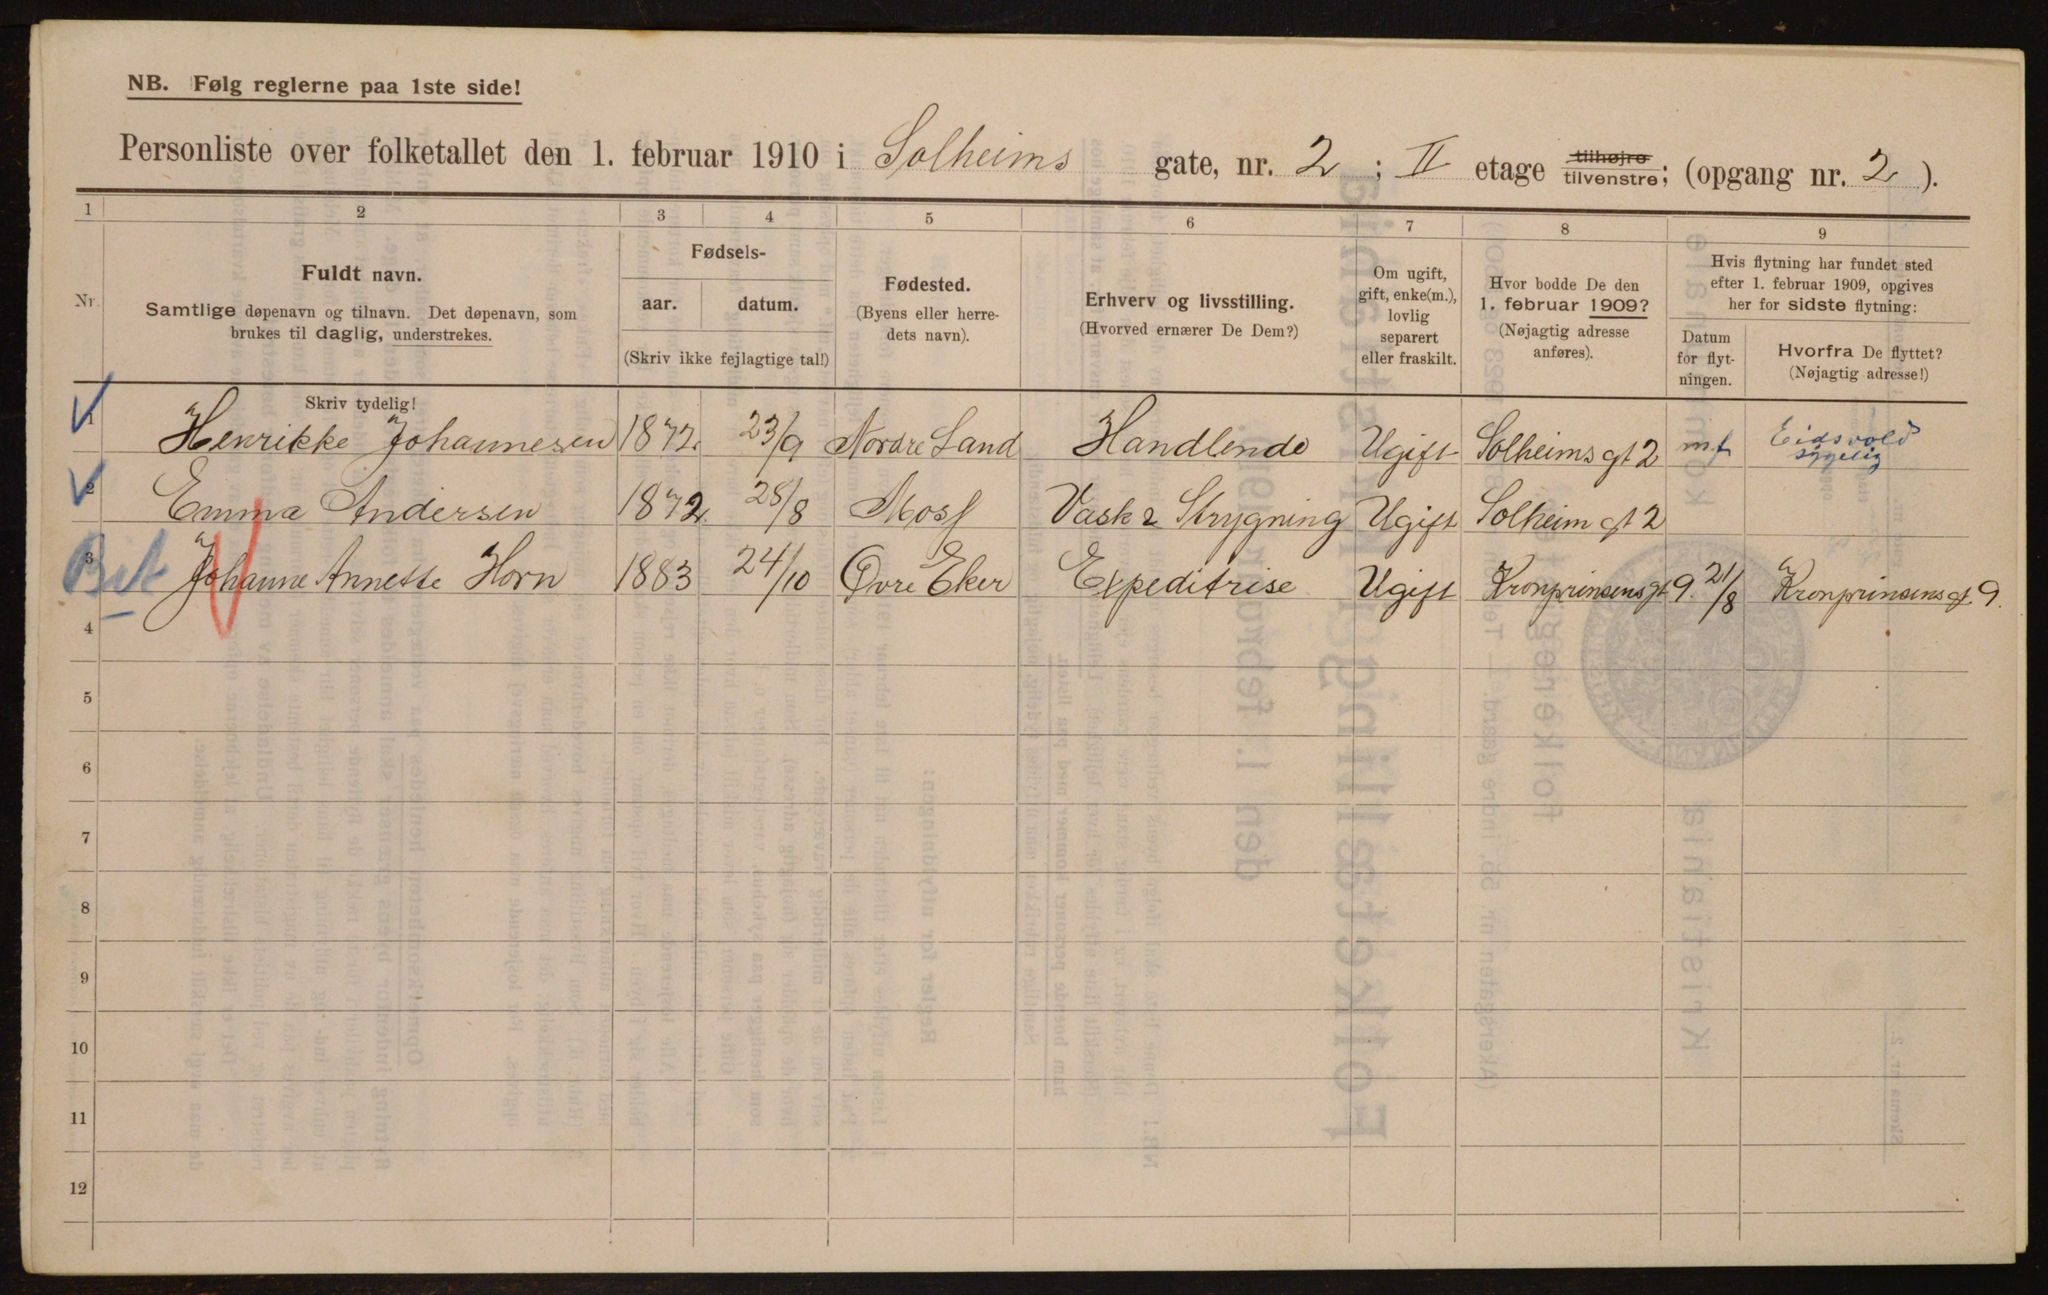 NB. Følg reglerne paa 1ste side!
Personliste over folketallet den 1. februar 1910 i Solheims gate, nr. 2 ; II etage tilhøjre tilvenstre; (opgang nr. 2 ).
1 2 3 4 5 6 7 8 9
Nr.
Fuldt navn.
Samtlige døpenavn og tilnavn. Det døpenavn, som
brukes til daglig, understrekes.
Skriv tydelig!
Fødsels-
aar. datum.
(Skriv ikke fejlagtige tal!)
Fødested.
(Byens eller herre-
dets navn).
Erhverv og livsstilling.
(Hvorved ernærer De Dem?)
Om ugift,
gift, enke(m.),
lovlig
separert
eller fraskilt.
Hvor bodde De den
1. februar 1909?
(Nøjagtig adresse
anføres).
Hvis flytning har fundet sted
efter 1. februar 1909, opgives
her for sidste flytning:
Datum
for flyt-
ningen.
Hvorfra De flyttet?
(Nøjagtig adresse!)
1 Henrikke Johannesen 1872 23/9 Nordre Land Handlende Ugift Solheims gt 2 mf Eidsvold
sygelig
2 Emma Andersen 1872 28/8 Moss Vask & Strygning Ugift Solheim gt 2
3 Johanne Annette Horn 1883 24/10 Øvre Eker Expeditrise Ugift Kronprinsens gt 9. 21/8 Kronprinsens gt. 9.
4
5
6
7
8
9
10
11
12